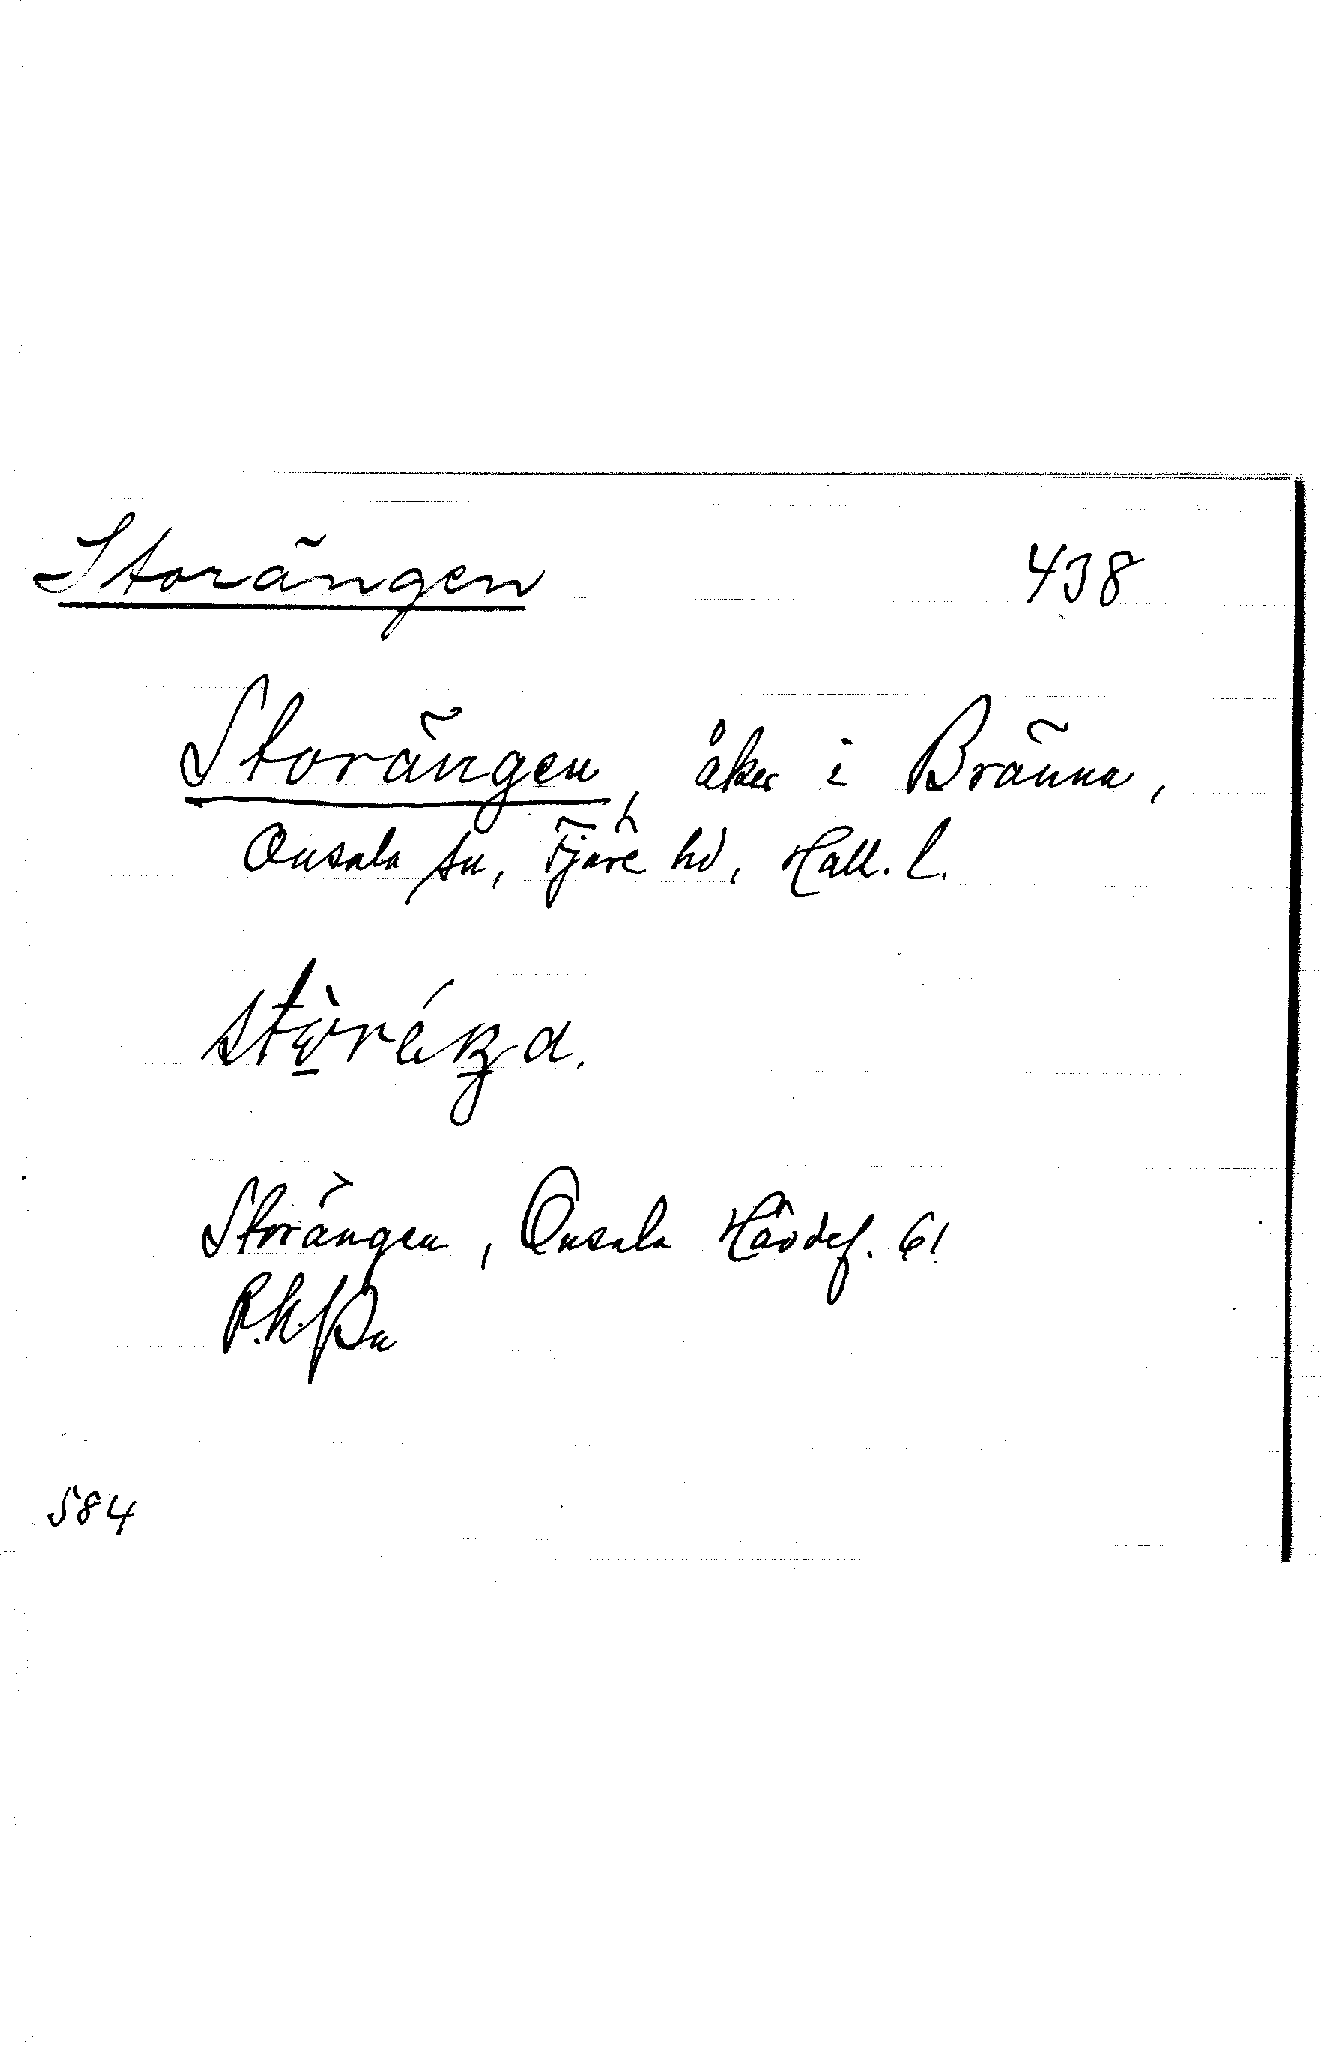 Storängen 438
Storängen, åker i Bränna,
Onsala sn, Fjäre hd, Hall. l.
Storängen, Onsala Hävdef. 61
584